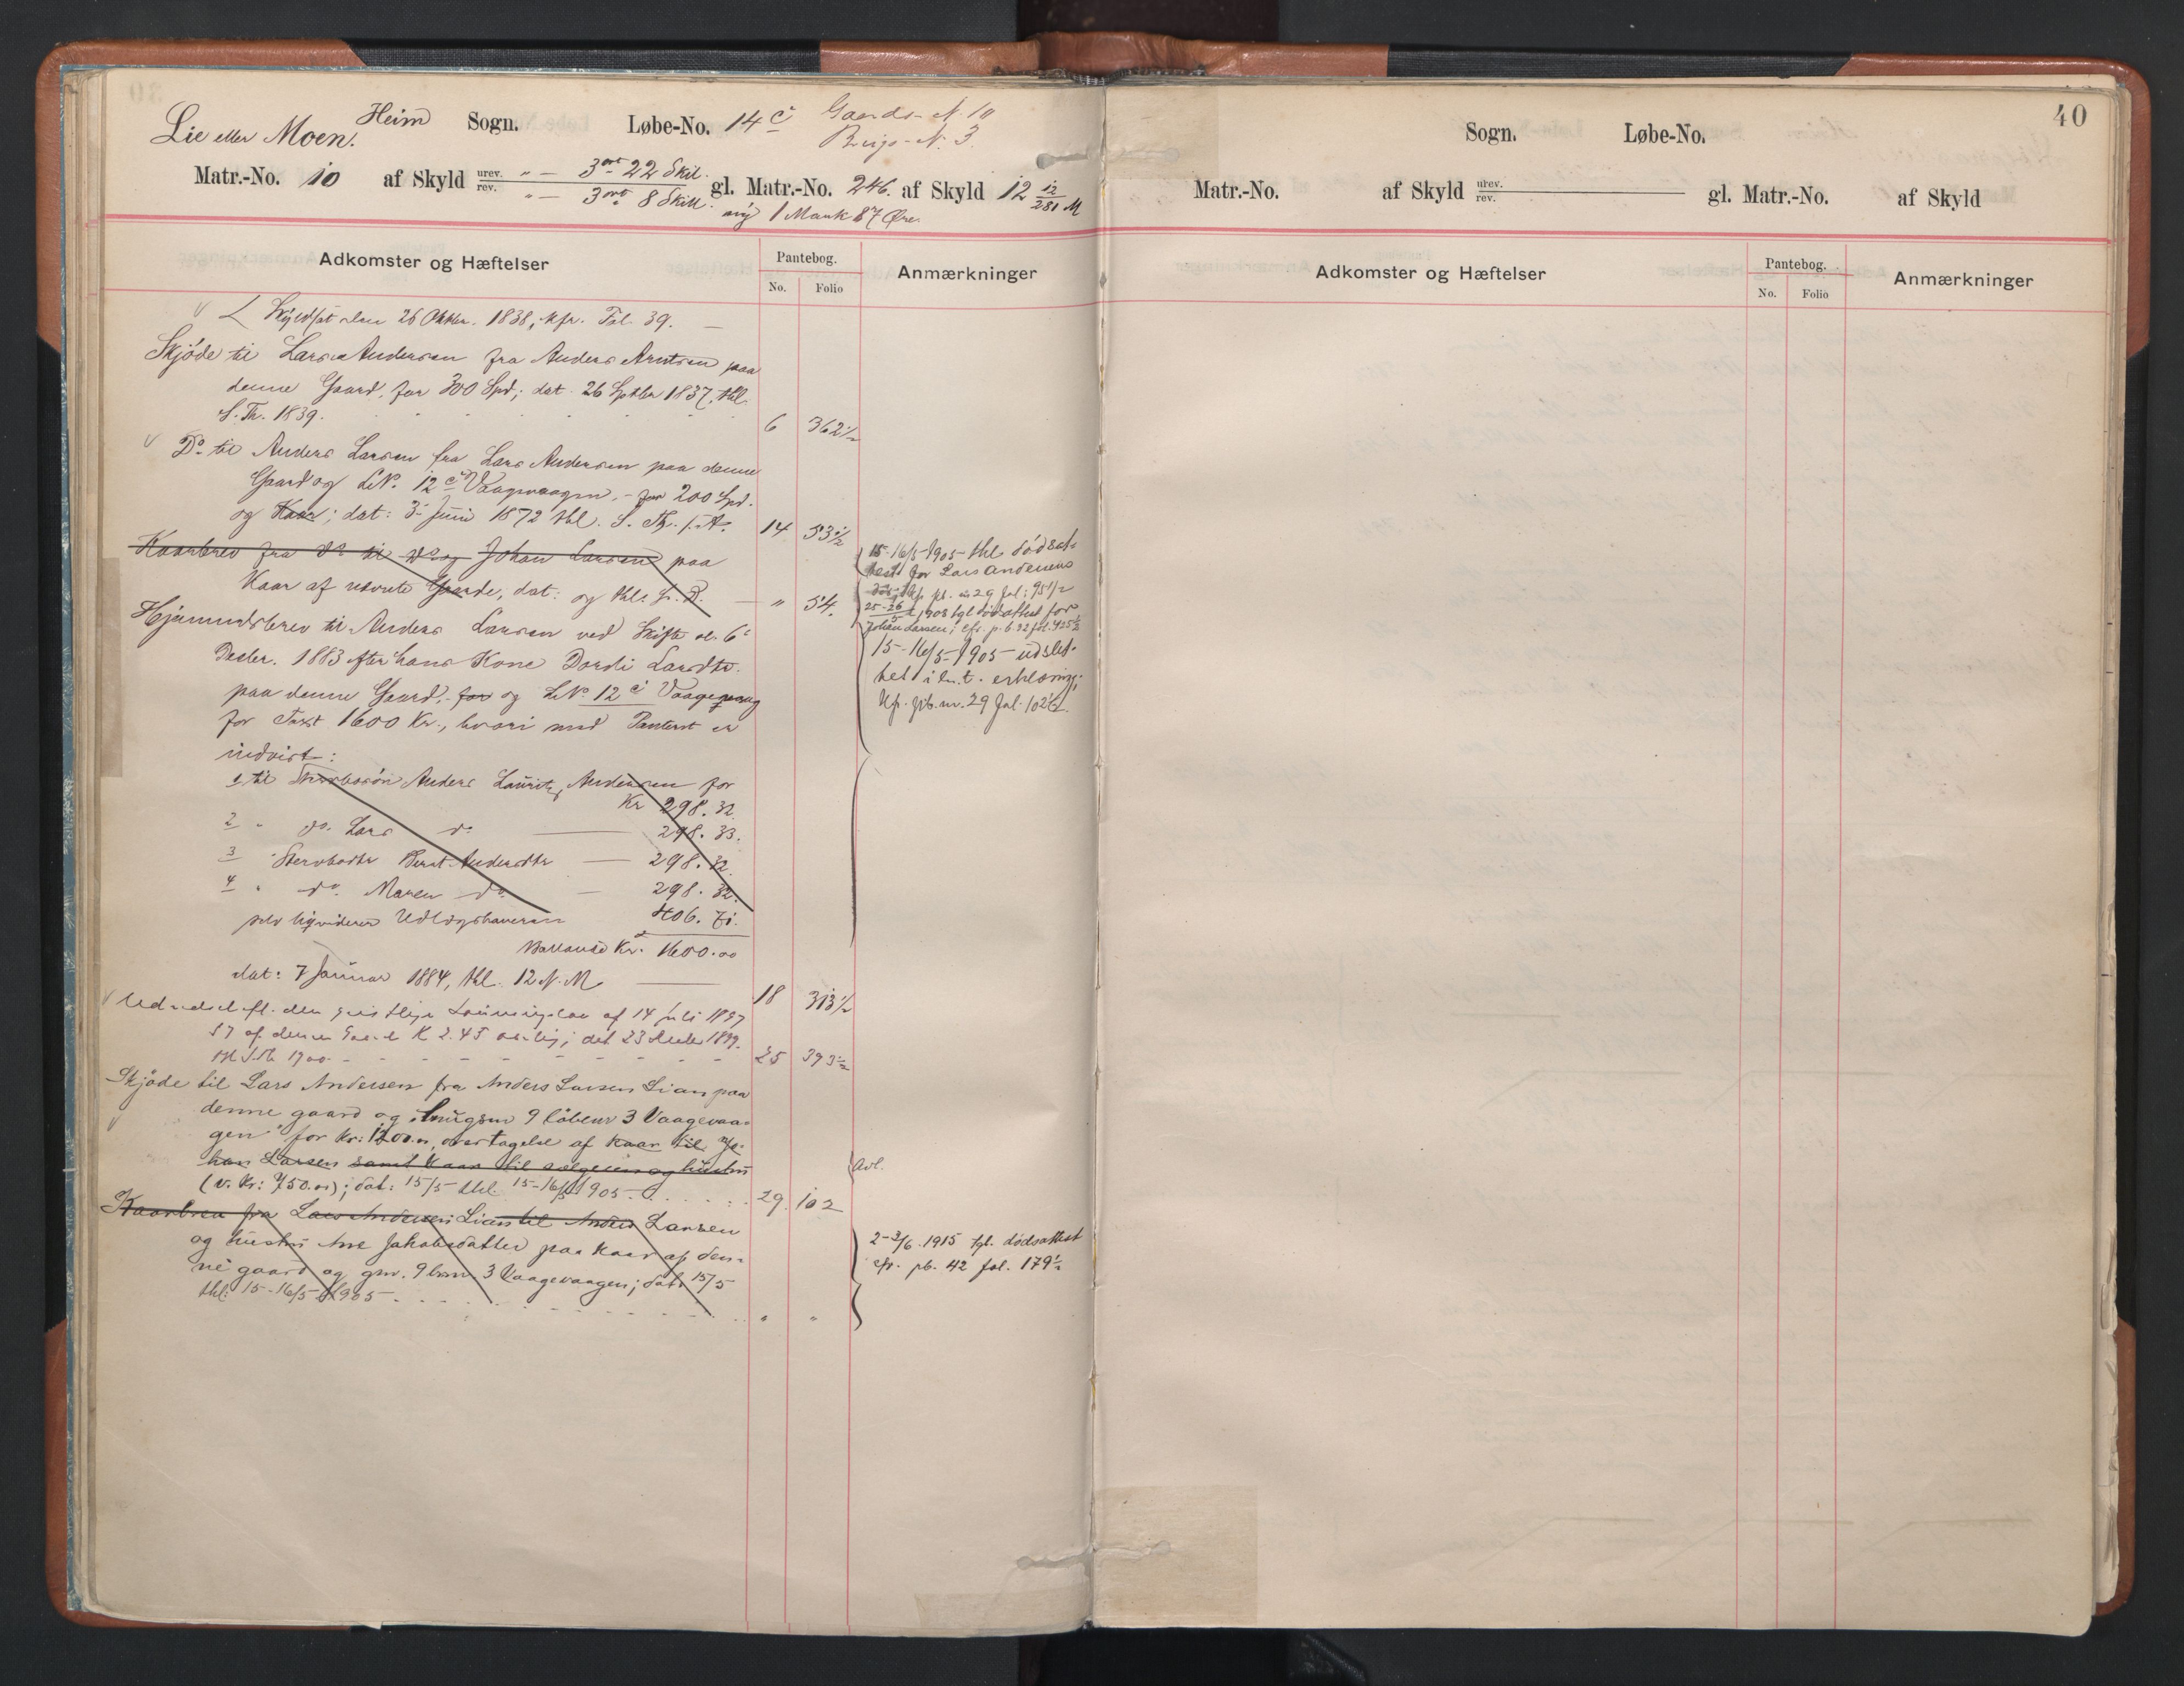 Lie eller Moen.
Heim Sogn. Løbe-No. 14 c Gaards-N. 10
Brugs-N. 3
Matr.-No. 10 af Skyld urev. " — 3 ort 22 Skil.
rev. " — 3 ort 8 Skill.
gl. Matr.-No. 246. af Skyld 12 12/281 M
ny 1 Mark 87 Øre.
Adkomster og Hæftelser
Pantebog.
No. Folio
Anmærkninger
Skyldsat den 26 Oktbr. 1838, kfr. Fol. 39. —
Skjøde til Lars Andersen fra Anders Arntsen paa
denne Gaard, for 300 Spd; dat. 26 Sptbr 1837, thl.
S. Th. 1839. 6 362 1/2
Do til Anders Larsen fra Lars Andersen paa denne
Gaard og LNo 12 c Vaagevaagen, - for 200 Spd.
og Kaar; dat: 3 Juni 1872 thl. S. Th. s. A. 14 53 1/2
Kaarbrev fra do til do og Johan Larsen paa
Kaar af nævnte Gaarde, dat: og thl. s. D. — " 54.
Hjemmelsbrev til Anders Larsen ved Skifte sl. 6
Decbr. 1883 efter hans Kone Dordi Larsdtr.
paa denne Gaard, for og LNo 12 c Vaagevaag
for Taxt 1600 Kr., hvori med Panteret er
indvist:
1 til Stervbosøn Anders Lauritz Andersen for
Kr 298. 32.
2 " do. Lars do — 298. 33.
3 " Stervbodtr Berit Andersdtr — 298. 32.
4 " do. Maren do. — 298. 32.
selv liqviderer Udlægshaveren 406. 71.
Ballance Kr. 1600.00
dat: 7 Januar 1884, thl. 12 N. M. — 18 313 1/2
Udskift. den geistlige Lønningslov af 14 juli 1897
§ 7 af denne Gaard K 2.45 aarlig; dat 23 1899.
thl S.Th 1900 - - - 25 393 1/2
Skjøde til Lars Andersen fra Anders Larsen Lian paa
denne gaard og 9 løbenr 3 Vaagevaa-
gen" for kr: 1200.00, overtagelse af kaar til Jo-
han Larsen samt kaar til sælgeren og hustru
(v. kr: 750.00); dat: 15/5 thl. 15-16/5 1905 - . . . . 29. 102
Kaarbrev fra Lars Andersen Lian til Anders Larsen
og hustru Ane Jakobsdatter paa kaar af den-
ne gaard og gnr. 9 bnr. 3 Vaagevaagen; dat: 15/5
thl: 15-16/5 1905 - . . . . " "
15-16/5 1905 thl. dødsat-
test for Lars Andersens
død, kfr. pb. nr 29 fol: 95 1/2
25-26 1908 tgl dødsattest for
Johan Larsen; cfr. p. b. 32 fol. 425 1/2
15-16/5 1905 udslet-
tet i h.t. erklæring;
Kfr. pb. nr. 29 fol. 102 1/2.
Avl.
2-3/6. 1915 tgl. dødsattest
cfr. pb. 42 fol. 179 1/2
40
Sogn. Løbe-No.
Matr.-No. af Skyld urev.
rev.
gl. Matr.-No. af Skyld
Adkomster og Hæftelser
Pantebog.
No. Folio
Anmærkninger